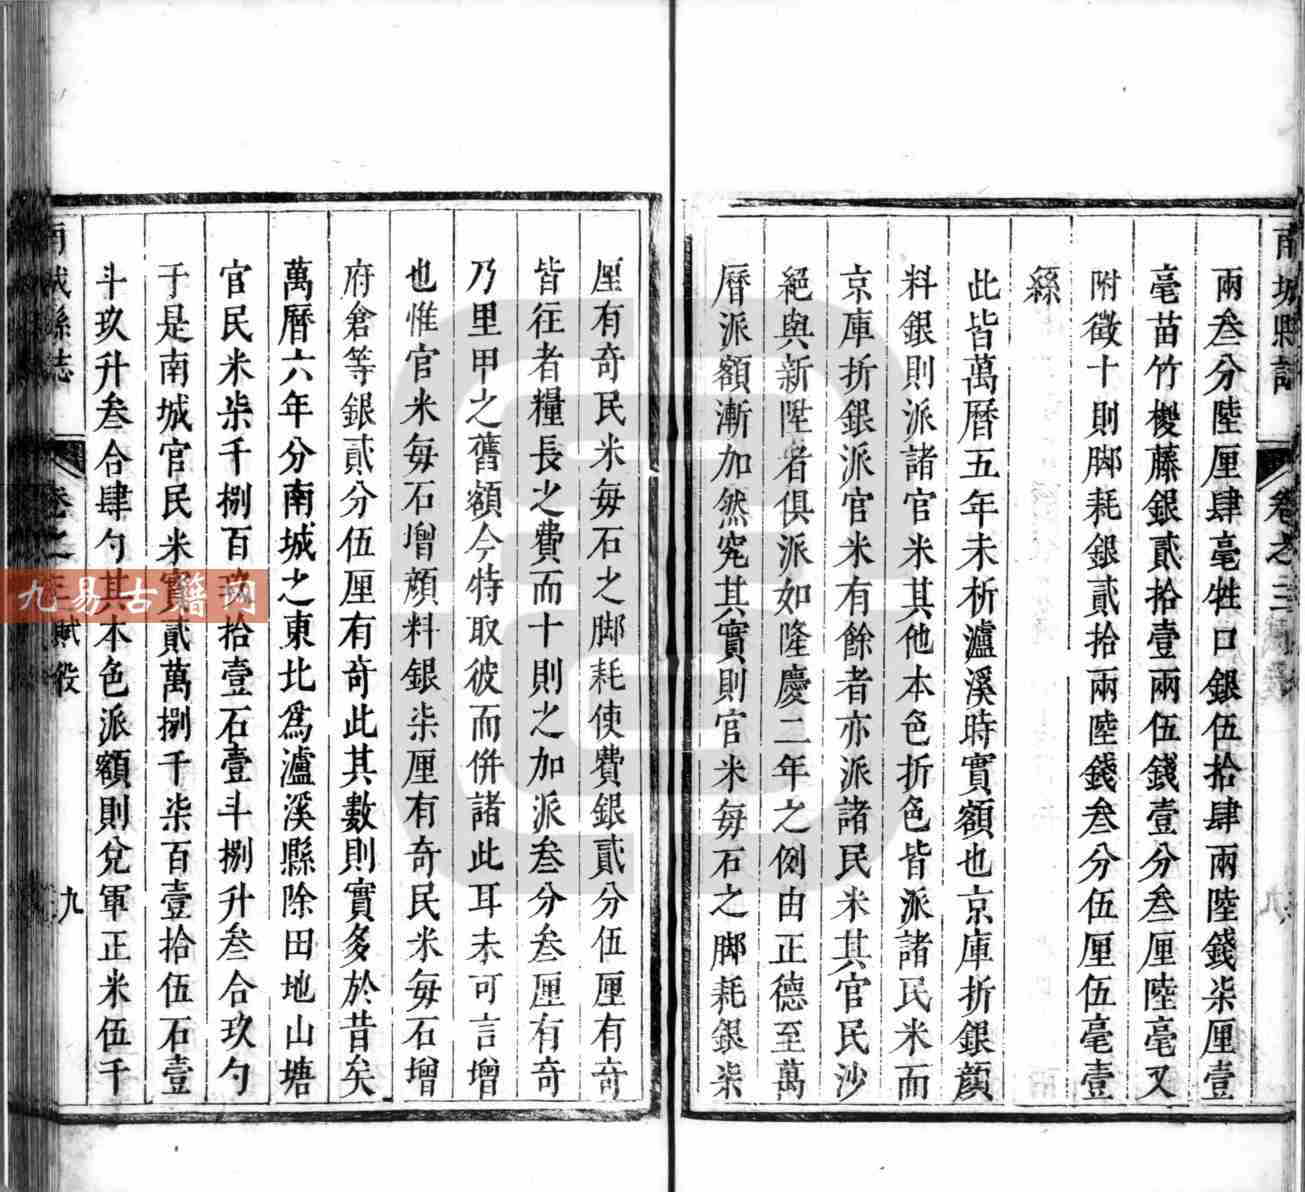 南城縣志
卷之三
兩叁分陸厘肆毫牲口銀伍拾肆兩陸錢柒厘壹
毫苗竹椶藤銀貳拾壹兩伍錢壹分叁厘陸毫又
附徵十則脚耗銀貳拾兩陸錢叁分伍厘伍毫壹
絲
此皆萬曆五年未析瀘溪時實額也京庫折銀顏
料銀則派諸官米其他本色折色皆派諸民米而
京庫折銀派官米有餘者亦派諸民米其官民沙
絕與新陞者俱派如隆慶二年之例由正德至萬
曆派額漸加然究其實則官米每石之脚耗銀柒
厘有奇民米每石之脚耗使費銀貳分伍厘有奇
皆往者糧長之費而十則之加派叁分叁厘有奇
乃里甲之舊額今特取彼而併諸此耳未可言增
也惟官米每石增顏料銀柒厘有奇民米每石增
府倉等銀貳分伍厘有奇此其數則實多於昔矣
萬曆六年分南城之東北爲瀘溪縣除田地山塘
官民米柒千捌百玖拾壹石壹斗捌升叁合玖勺
于是南城官民米實貳萬捌千柒百壹拾伍石壹
斗玖升叁合肆勺其本色派額則兌軍正米伍千
南城縣志
卷之三賦役
九
九易古籍网